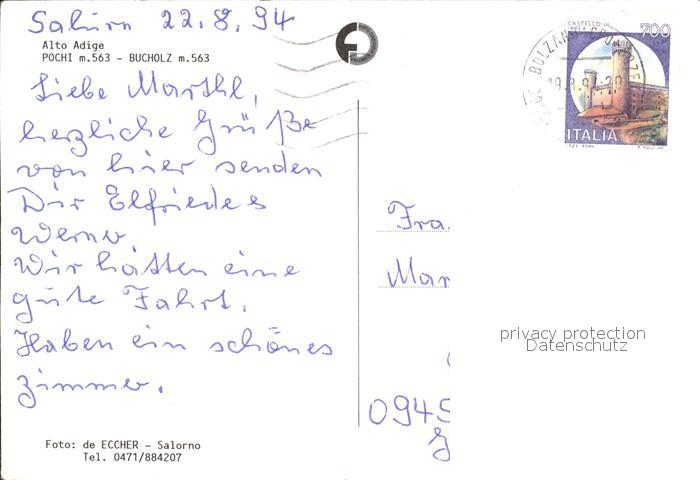 Salurn 22.8.94
Alto Adige
POCHI m.563 – BUCHOLZ m.563
Liebe Marthl,
herzliche Grüße
von hier senden
Dir Elfriede &
Werner.
Wir hatten eine
gute Fahrt.
Haben ein schönes
Zimmer.
Foto: de ECCHER – Salorno
Tel. 0471/884207
CASTELLO DI
IVREA
700
BOLZANO
ITALIA
Fra
Mar
privacy protection
Datenschutz